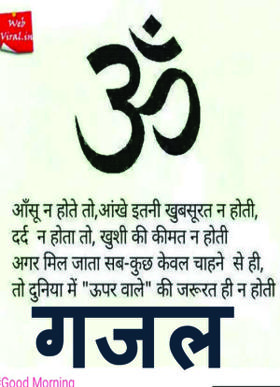 Web
Viral.in
ॐ
आँसू न होते तो,आंखे इतनी खुबसूरत न होती,
दर्द न होता तो, खुशी की कीमत न होती
अगर मिल जाता सब-कुछ केवल चाहने से ही,
तो दुनिया में "ऊपर वाले" की जरूरत ही न होती
गजल
#Good Morning